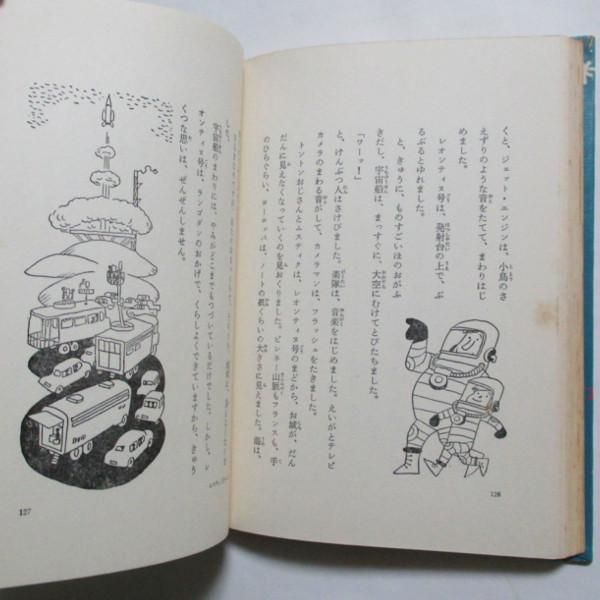 くと、ジェット・エンジンは、小鳥のさ
えずりのような音をたてて、まわりはじ
めました。
レオンティヌ号は、発射台の上で、ぶ
るぶるとゆれました。
と、きゅうに、ものすごいほのおがふ
きだし、宇宙船は、まっすぐに、大空にむけてとびたちました。
「ワーッ！」
と、けんぶつ人はさけびました。楽隊は、音楽をはじめました。えいがとテレビ
カメラのまわる音がして、カメラマンは、フラッシュをたきました。
トントンおじさんとムスティクは、レオンティヌ号のまどから、お城が、だん
だんに見えなくなっていくのを見おくりました。ピレネー山脈もフランスも、手
のひらぐらい、ヨーロッパは、ノートの紙くらいの大きさに見えました。海は、
126
した。
宇宙船のまわりには、やみがどこまでもつづいているだけでした。しかし、レ
オンティヌ号は、ランゴダンのおかげで、くらしよくできていますから、きゅう
くつな思いは、ぜんぜんしません。
127